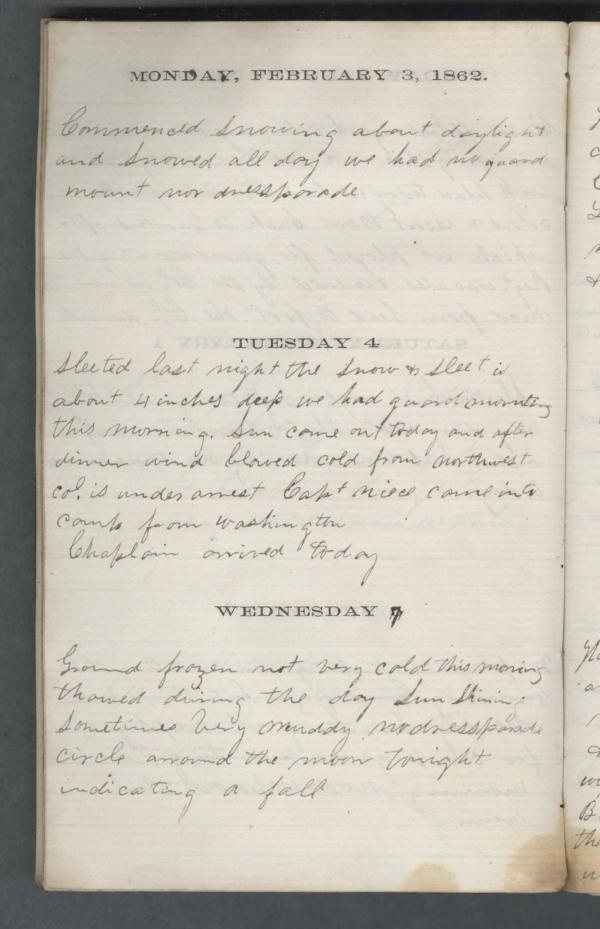 MONDAY, FEBRUARY 3, 1862.
Commenced Snowing about daylight
and Snowed all day we had no guard
mount nor dressparade
TUESDAY 4
Sleeted last night the Snow & Sleet is
about 4 inches deep we had guard mounting
this morning. Sun come out today and after
dinner wind blowed cold from northwest
col. is under arrest Capt Niece came into
camp from Washington
Chaplain arrived today
WEDNESDAY
Ground frozen not very cold this morning
thawed during the day Sun Shining
Sometimes Very muddy no dressparade
circle arround the moon tonight
indicating a fall